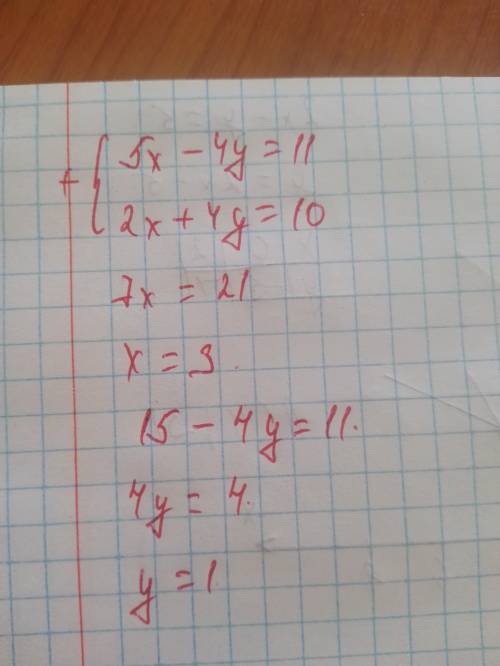 + { 5x - 4y = 11
2x + 4y = 10
7x = 21
x = 3.
15 - 4y = 11.
4y = 4.
y = 1